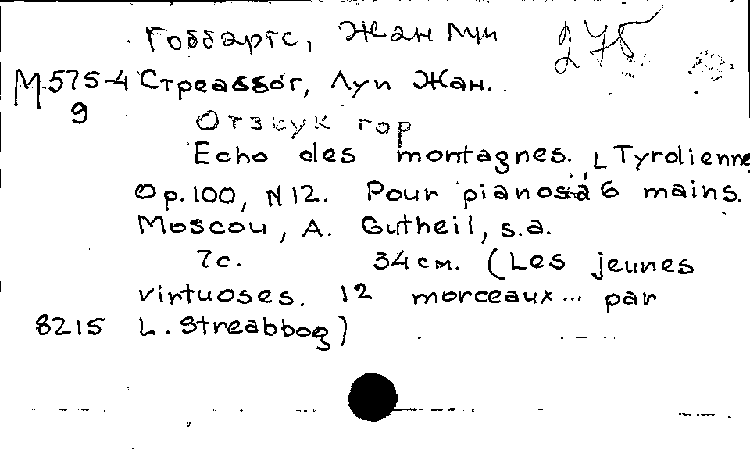 Гоббартс, Жан Луи 275
М575-4 Стреаббог, Луи Жан.
9
Отзвук гор
Echo des montagnes. Tyrolienne
Op.100, N12. Pour pianos à 6 mains.
Moscou, A. Gutheil, s.a.
7с. 34см. (Les jeunes
virtuoses. 12 morceaux... par
8215 L. Streabbog)